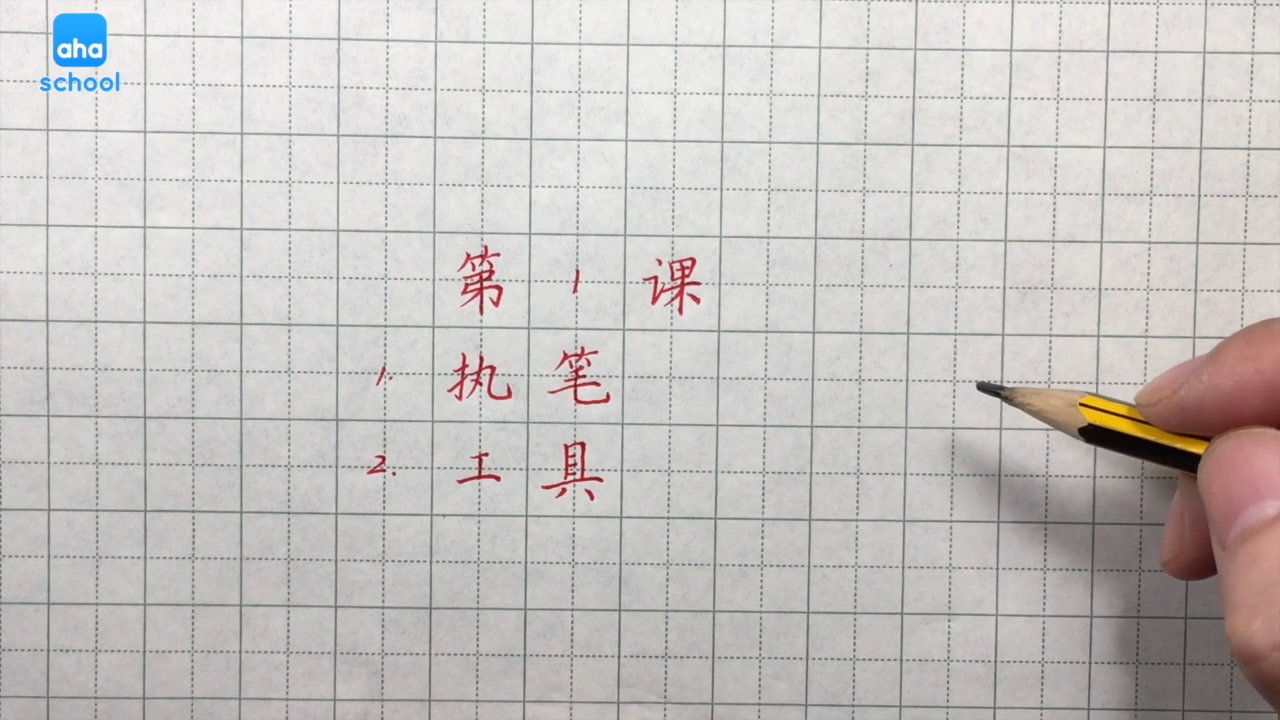 aha
school
第1课
1. 执笔
2. 工具